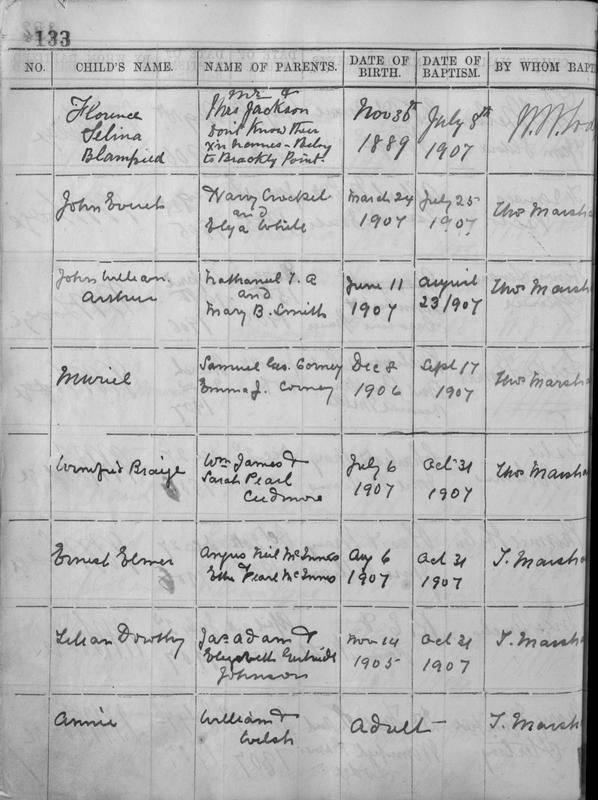 133
NO. CHILD'S NAME. NAME OF PARENTS. DATE OF BIRTH. DATE OF BAPTISM. BY WHOM BAPT
Florence Selina Blampied
Mr &
Jackson
Dont Know their
xin names - Belong
to Brackly Point.
Nov 30th 1889
July 8th 1907
John Everet
Harry Crockett
and
Eliza White
March 24 1907
July 25 1907
Thos Marsha
John William Arthur
Nathaniel T. A
and
Mary B. Smith
June 11 1907
August 23 1907
Thos Marsha
Muriel
Samuel Geo. Corney
Emma J. Corney
Dec 8 1906
Sept 17 1907
Thos Marsha
Winnifred
Wm James &
Sarah Pearl
Cudmore
July 6 1907
Oct 31 1907
Thos Marsha
Ernest Elmer
Angus Neil McInnes
Pearl McInnes
Aug 6 1907
Oct 31 1907
T. Marsha
Lilian Dorothy
Jas Adam &
Elizabeth Gertrude
Johnson
Nov 14 1905
Oct 31 1907
T. Marsha
Annie
William &
Welsh
Adult
T. Marsha